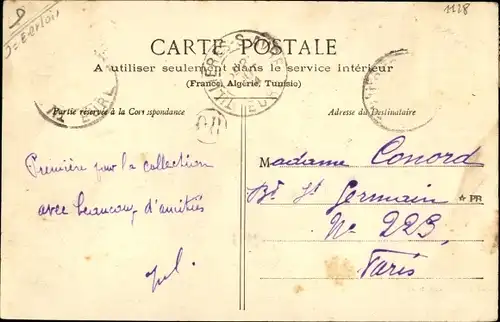 1128
CARTE POSTALE
A utiliser seulement dans le service intérieur
(France, Algérie, Tunisie)
Partie réservée à la Correspondance
Adresse du Destinataire
OR
Première pour la collection
avec beaucoup d'amitiés
Madame Conord
Bd St Germain
No 223,
Paris